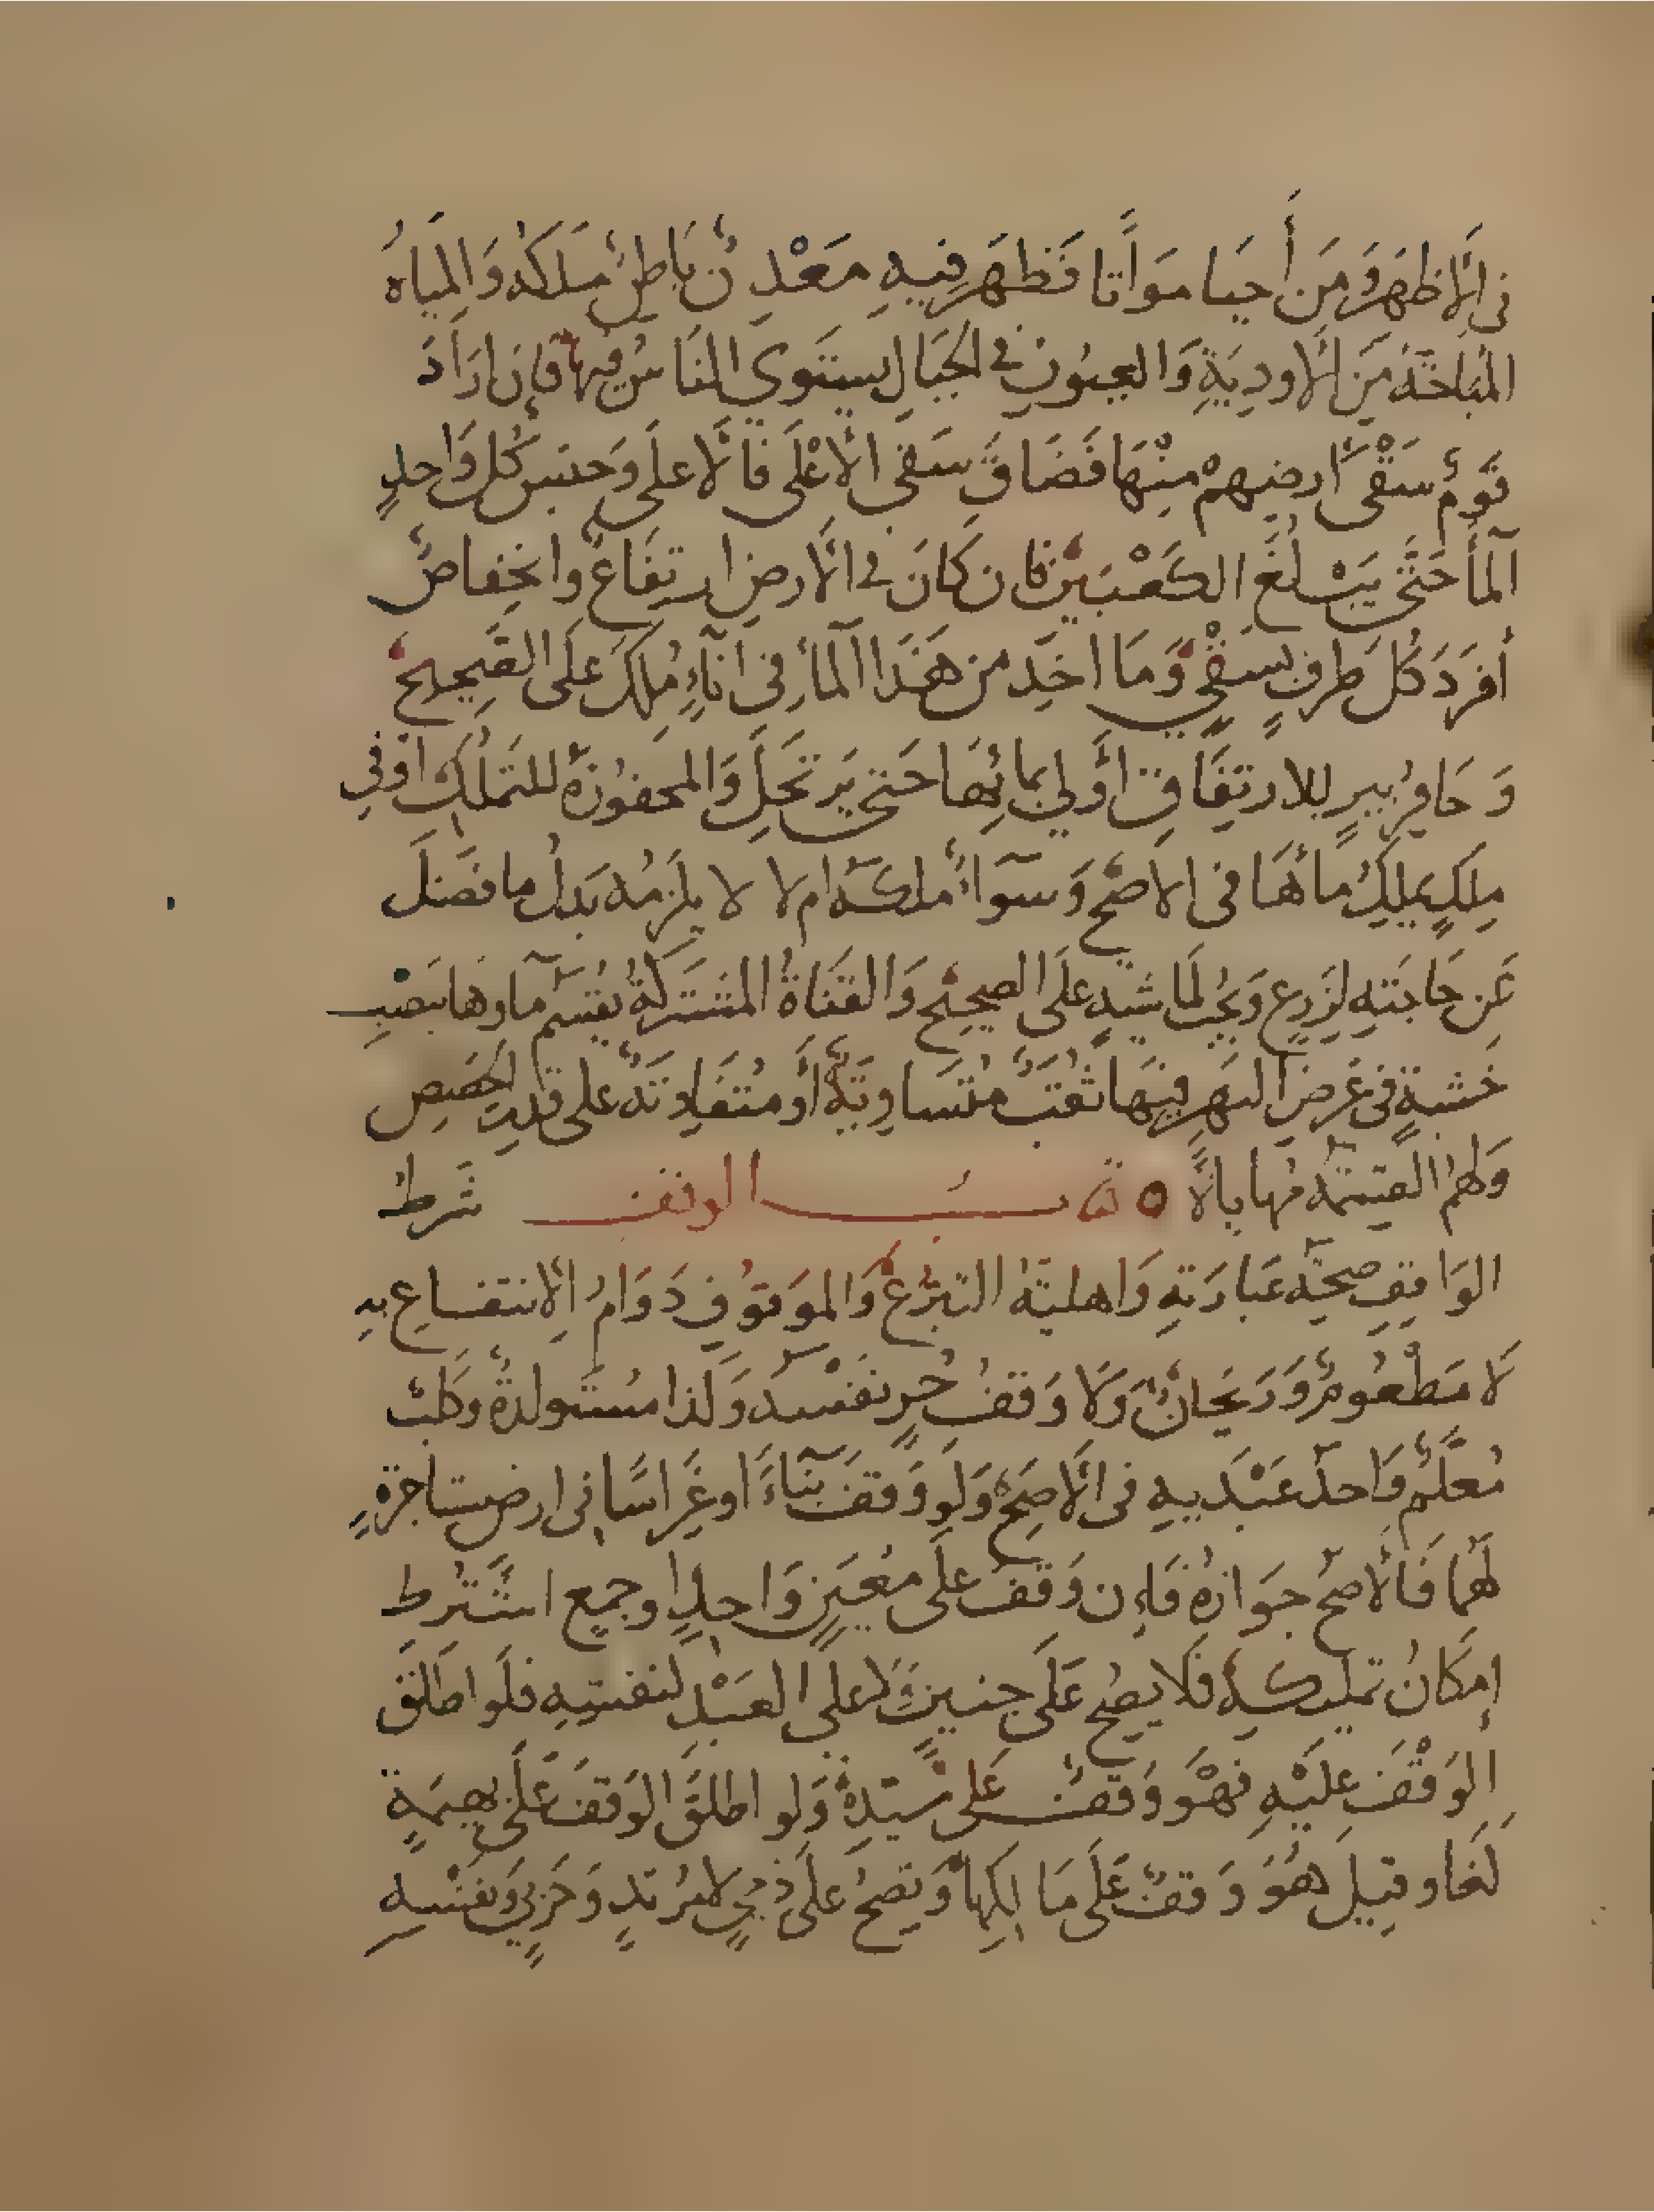 في الأظهر ومن أحيا مواتا فظهر فيه معدن باطن ملكه والمياه
المباحة من الأودية والعيون في الجبال يستوي الناس فيها فإن أراد
قوم سقي أرضيهم منها فضاق سقي الأعلى فالأعلى وحبس كل واحد
الماء حتى يبلغ الكعبين فإن كان في الأرض ارتفاع وانخفاض
أفرد كل طرف بسقي وما أخذ من هذا الماء في اناء ملك على الصحيح
وحافر بير للارتفاق أولى بمائها حتى يرتحل والمحفورة للتملك أو في
ملك يملك ماءها في الأصح وسواء ملكه أم لا لا يلزمه بذل ما فضل
عن حاجته لزرع ويجب لماشية على الصحيح والقناة المشتركة يقسم ماوها بنصب
خشبة في عرض النهر فيها ثقب متساوية أو متفاوتة على قدر الحصص
ولهم القسمة مهاياة ه كتاب الوقف شرط
الواقف صحة عبارته وأهلية التبرع والموقوف دوام الانتفاع به
لا مطعوم وريحان ولا وقف حر نفسه وكذا مستولدة وكلب
معلم واحد عبديه في الأصح ولو وقف بناء او غراسا في ارض مستاجرة
لهما فالأصح جوازه فإن وقف على معين واحد او جمع اشترط
إمكان تمليكه فلا يصح على جنين ولا على العبد لنفسه فلو اطلق
الوقف عليه فهو وقف على سيده ولو اطلق الوقف على بهيمة
لغا وقيل هو وقف على مالكها ويصح على ذمي لا مرتد وحربي ونفسه